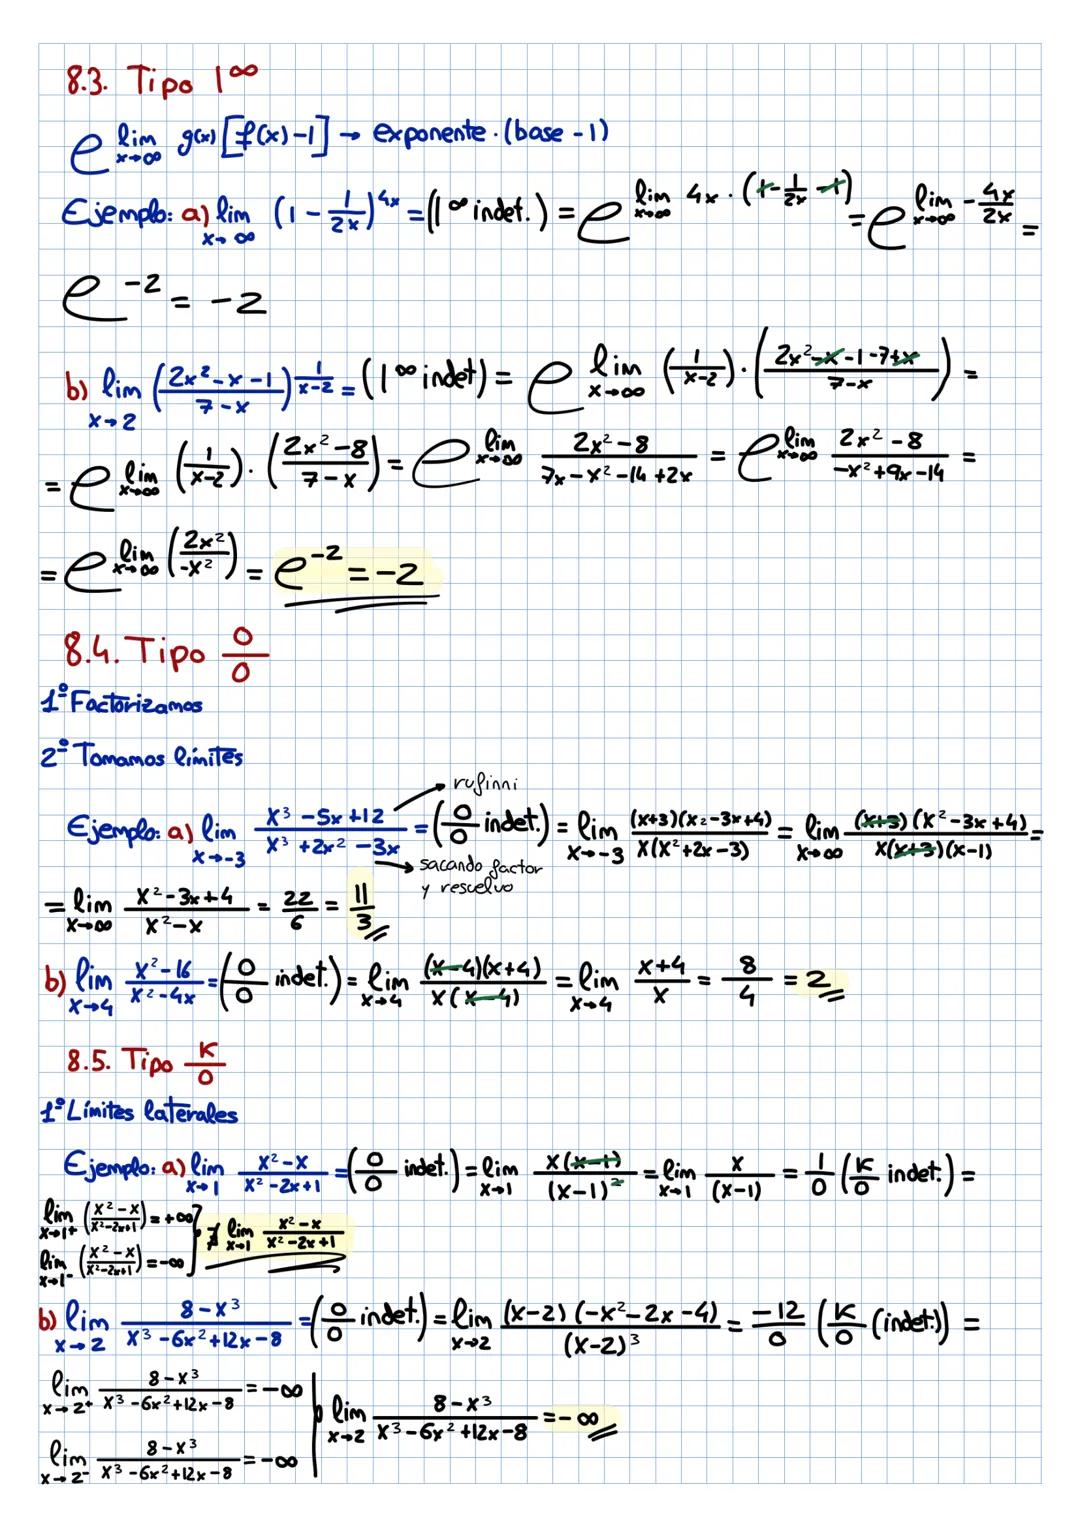 8.3. Tipo 1^∞
e^{lim x→∞ g(x) [f(x)-1]} → exponente · (base - 1)
Ejemplo: a) lim x→∞ (1 - 1/2x)^{4x} = (1^∞ indet.) = e^{lim x→∞ 4x · (1 - 1/2x - 1)} = e^{lim x→∞ - 4x/2x} =
e^{-2} = -2
b) lim x→2 ((2x² - x - 1)/(7 - x))^{1/(x-2)} = (1^∞ indet) = e^{lim x→∞ (1/(x-2)) · ((2x² - x - 1 - 7 + x)/(7 - x))} =
= e^{lim x→∞ (1/(x-2)) · ((2x² - 8)/(7 - x))} = e^{lim x→∞ (2x² - 8)/(7x - x² - 14 + 2x)} = e^{lim x→∞ (2x² - 8)/(-x² + 9x - 14)} =
= e^{lim x→∞ (2x²/-x²)} = e^{-2} = -2
8.4. Tipo 0/0
1º Factorizamos
2º Tomamos límites
rufinni
Ejemplo: a) lim x→-3 (x³ - 5x + 12)/(x³ + 2x² - 3x) = (0/0 indet.) = lim x→-3 (x+3)(x2 - 3x + 4)/x(x² + 2x - 3) = lim x→∞ (x+3)(x² - 3x + 4)/x(x+3)(x-1) =
sacando factor
y resuelvo
= lim x→∞ (x² - 3x + 4)/(x² - x) = 22/6 = 11/3
b) lim x→4 (x² - 16)/(x² - 4x) = (0/0 indet.) = lim x→4 (x-4)(x+4)/x(x-4) = lim x→4 (x+4)/x = 8/4 = 2
8.5. Tipo K/0
1º Límites laterales
Ejemplo: a) lim x→1 (x² - x)/(x² - 2x + 1) = (0/0 indet.) = lim x→1 x(x-1)/(x-1)² = lim x→1 x/(x-1) = 1/0 (K/0 indet.) =
lim x→1⁺ ((x² - x)/(x² - 2x + 1)) = +∞ } ∄ lim x→1 (x² - x)/(x² - 2x + 1)
lim x→1⁻ ((x² - x)/(x² - 2x + 1)) = -∞
b) lim x→2 (8 - x³)/(x³ - 6x² + 12x - 8) = (0/0 indet.) = lim x→2 (x-2)(-x² - 2x - 4)/(x-2)³ = -12/0 (K/0 (indet.)) =
lim x→2⁺ (8 - x³)/(x³ - 6x² + 12x - 8) = -∞
lim x→2 (8 - x³)/(x³ - 6x² + 12x - 8) = -∞
lim x→2⁻ (8 - x³)/(x³ - 6x² + 12x - 8) = -∞